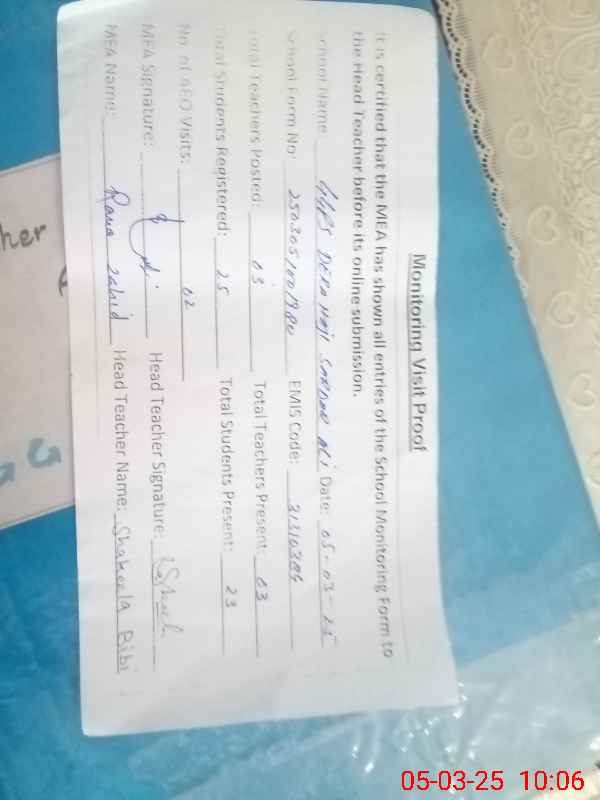 Monitoring Visit Proof
It is certified that the MEA has shown all entries of the School Monitoring Form to
the Head Teacher before its online submission.
School Name: GGPS DERA HAJI SARDAR ALI Date: 05-03-25
School Form No: EMIS Code:
Total Teachers Posted: 03 Total Teachers Present: 03
Total Students Registered: 25 Total Students Present: 23
No. of AEO Visits: 02
MEA Signature: Head Teacher Signature:
MEA Name: Rana Zahid Head Teacher Name: Shakeela Bibi
her
05-03-25 10:06